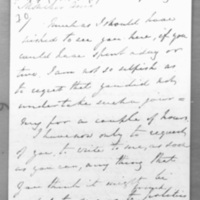 Much as I should have
wished to see you here, if you
could have spent a day or
two, I am not so selfish as
to regret that you did not
undertake such a jour-
ney for a couple of hours.
I have now only to request
of you, to write to me, as soon
as you can, any thing that
you think it might be